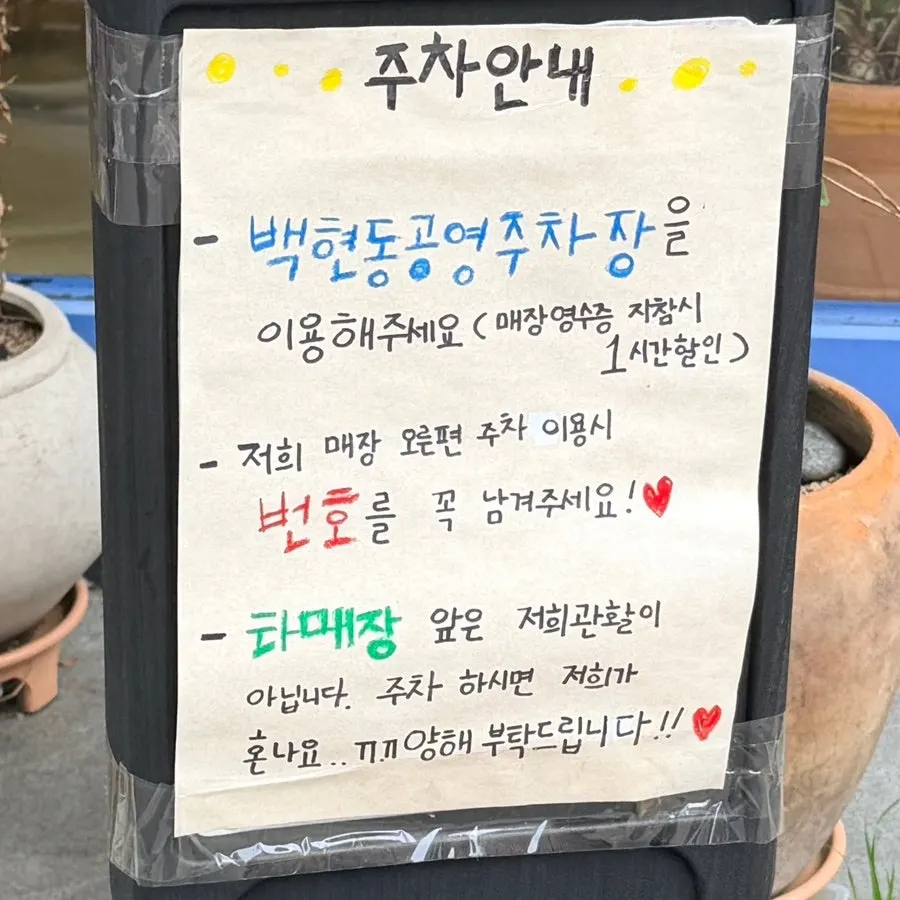 주차안내
- 백현동공영주차장을
이용해주세요 (매장영수증 지참시
1시간할인)
- 저희 매장 오른편 주차 이용시
번호를 꼭 남겨주세요!
- 타매장 앞은 저희관할이
아닙니다. 주차 하시면 저희가
혼나요.. ㄲㄲ양해 부탁드립니다!!